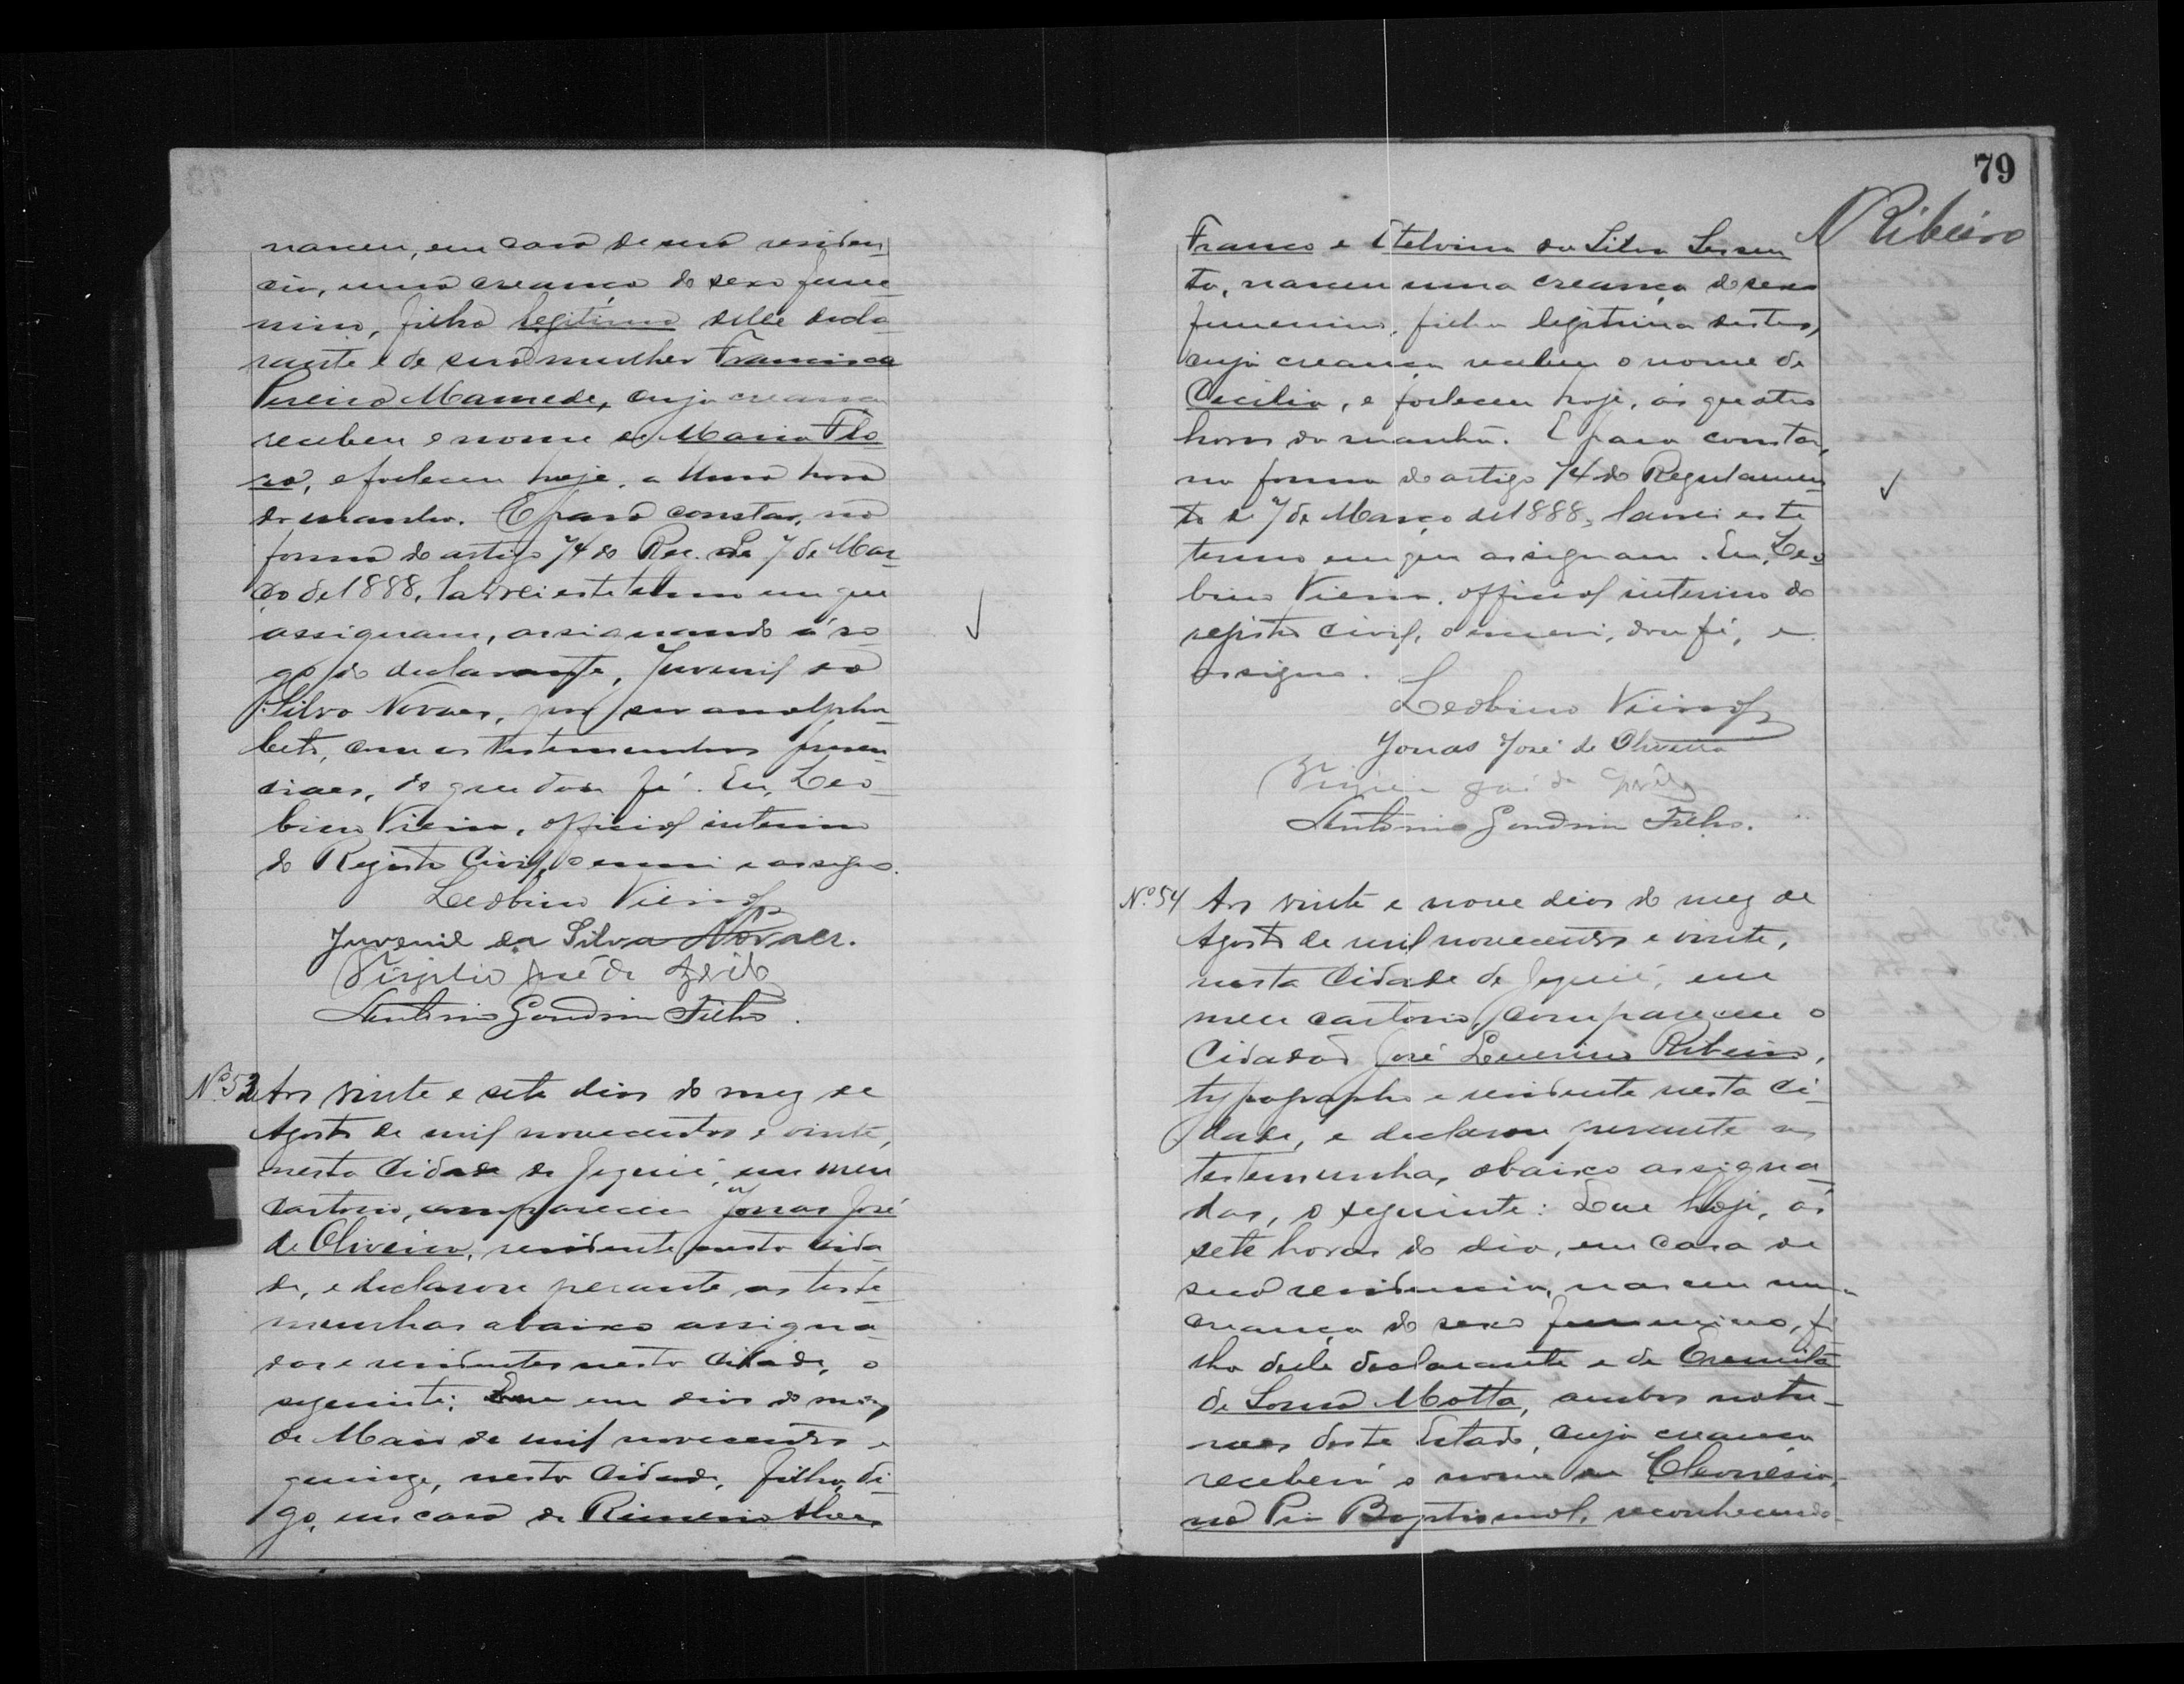 nasceu, em casa de sua residen
cia, uma creança do sexo feme
nino, filha legitima delle decla
rante e de sua mulher Francisca
Pereira Mamede, cuja creança
recebeu o nome de Maria Flo
ra, e faleceu hoje, a uma hora
da manhã. E para constar, na
forma do artigo 74 do Reg. de 7 de Mar
ço de 1888, lavrei este termo em que
assignam, assignando á ro
go do declarante, Juvenil da
Silva Novaes, por ser analpha
beto, com as testemunhas presen
ciaes, do que dou fé. Eu, Leo
bino Vieira, official interino
do Registro Civil, o escrevi e assigno.
Leobino Vieira
Juvenil da Silva Novaes.
Virgilio José de
Antonio Gondim Filho.
Nº 53 Aos vinte e sete dias do mez de
Agosto de mil novecentos e vinte,
nesta Cidade de Jequié, em meu
cartorio, compareceu Jonas José
de Oliveira, residente nesta cida
de, e declarou perante as teste
munhas abaixo assigna
das e residentes nesta Cidade, o
seguinte: Que em dias do mez
de Maio de mil novecentos e
quinze, nesta Cidade, filha, di
go, em casa de Alves
79
N Ribeiro
Franco e Etelvina da Silva
to, nasceu uma creança do sexo
femenino, filha legitima destes,
cuja creança recebeu o nome de
Cecilia, e faleceu hoje, ás quatro
horas da manhã. E para constar,
na forma do artigo 74 do Regulamen
to de 7 de Março de 1888, lavrei este
termo em que assignam. Eu, Leo
bino Vieira, official interino do
registro civil, o escrevi, dou fé, e
assigno.
Leobino Vieira
Jonas José de Oliveira
Virgilio José de
Antonio Gondim Filho.
Nº 54 Aos vinte e nove dias do mez de
Agosto de mil novecentos e vinte,
nesta Cidade de Jequié, em
meu cartorio, compareceu o
Cidadão José Ribeiro,
typographo e residente nesta Ci
dade, e declarou perante as
testemunhas, abaixo assigna
das, o seguinte: Que hoje, ás
sete horas do dia, em casa de
sua residencia, nasceu uma
creança do sexo femenino, fi
lha dele declarante e de
de Souza Motta, ambos natu
raes deste Estado, cuja creança
receberá o nome de
na Pia Baptismal, reconhecendo